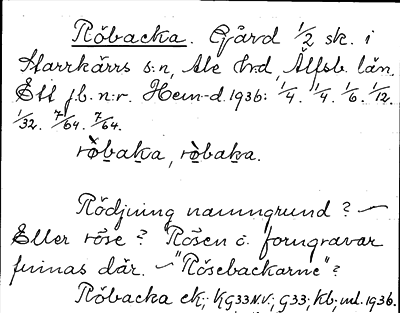 Röbacka. Gård 1/2 sk. i
Starrkärrs s:n, Ale hrd, Älfsb. län.
Ett f.b. n:r. Hem-d. 1936: 1/4. 1/4. 1/6. 1/12.
1/32. 7/64. 7/64.
röbaka, röbaka.
Rödjning namngrund? –
Eller röse? Rösen o. forngravar
finnas där. – "Rösebackarne"?
Röbacka ek; KG33N.V.; G33; Kb; ml. 1936.